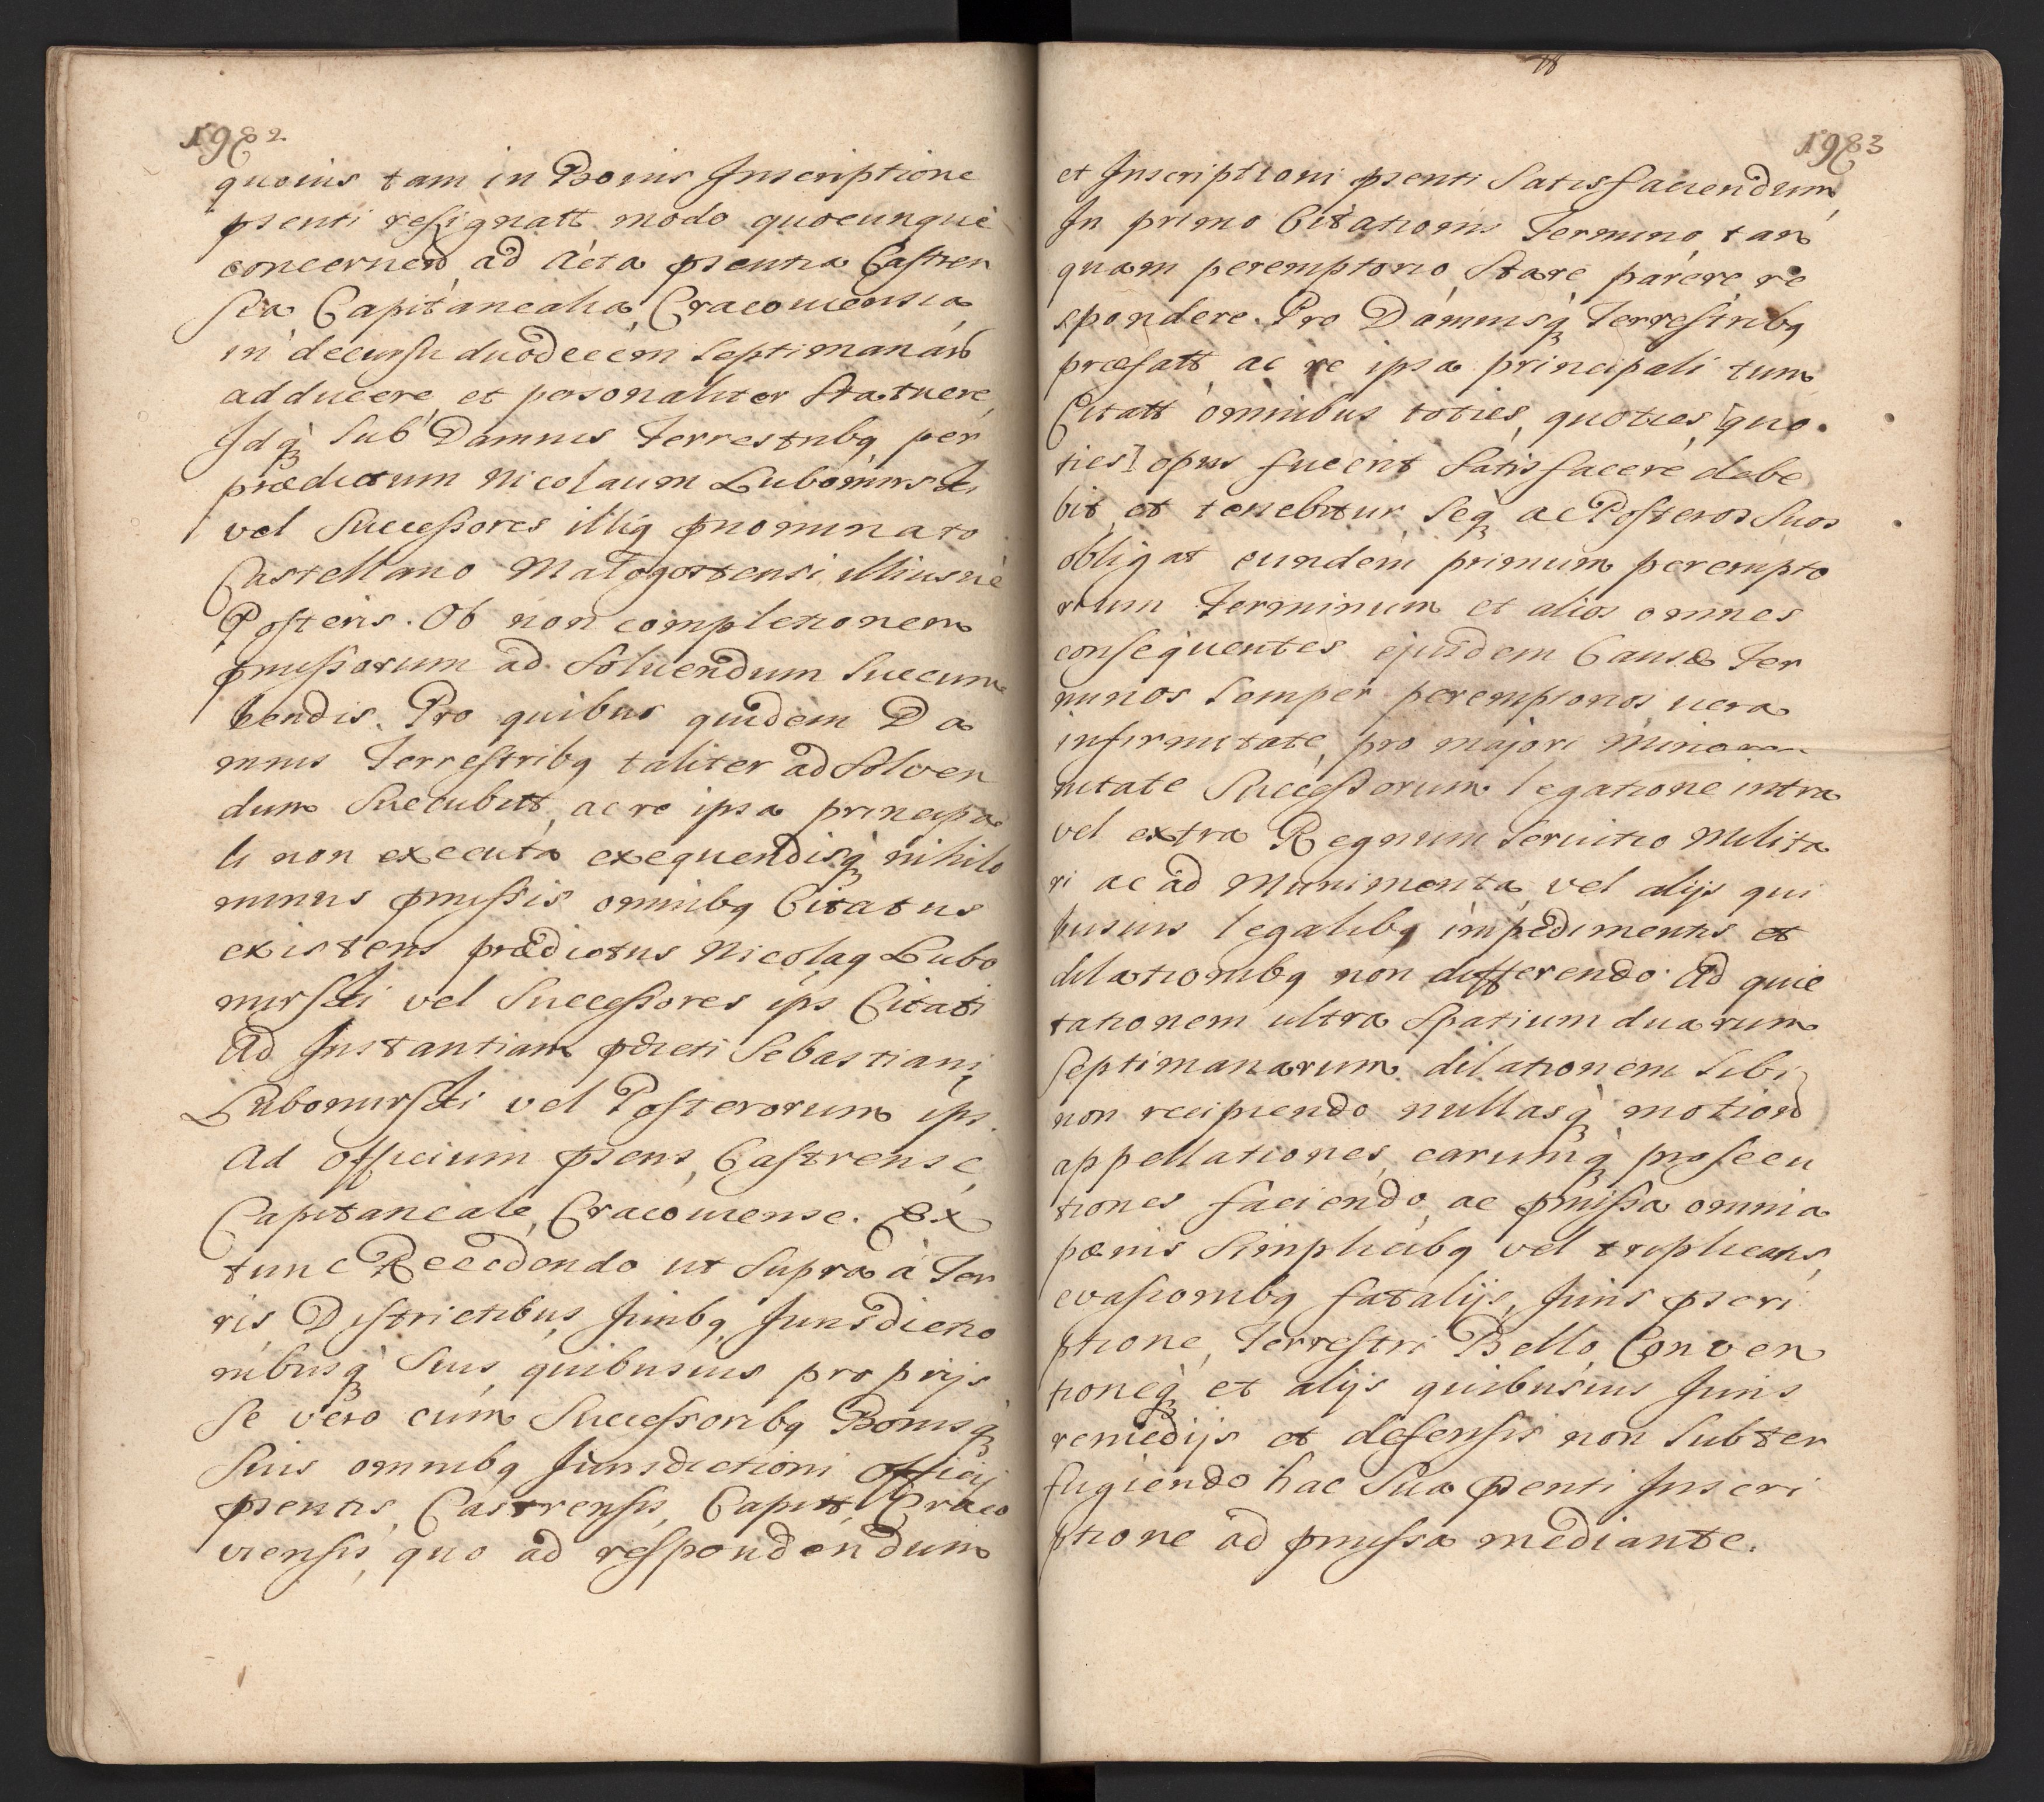 1982
quovis tam in Bonis Inscriptione
pñsenti resignatt modo quocunque
concernen ad Acta pñsentia Castren
sia Capitanealia Cracoviensia
in decursu duodecim Septimanarũ
adducere et personaliter Statuere
Idq̃ sub Damnis Terrestribq per
prædictum Nicolaum Lubomirski
vel Successores illiq pñominato
Castellano Małogostensi illiusve
Posteris. Ob non completionem
pmissorum ad Solvendum Succum
bendis. Pro quibus quidem Da
mnis Terrestribq taliter ad Solven
dum Succubitt ac re ipsa principa
li non executa exequendisq̃ nihilo
minus pmissis omnibq Citatus
existens prædictus Nicolaq Lubo
mirski vel Successores ips Citati
Ad Instantiam pdicti Sebastiani
Lubomirski vel Posterorum ips.
Ad Officium psens Castrense
Capitaneale Cracoviense. Ex
tunc Recedendo ut Supra à Ter
ris Districtibus Juribq Jurisdictio
nibusq̃ Suis quibusvis proprijs
Se vero cum Successoribq Bonisq̃
Suis omnibq Jurisdictioni Officij
psentis Castrensis, Capitt Craco
viensis, quo ad respondendum
1983
et Inscriptioni psenti Satisfaciendum
In primo Citationis Termino tan
quam peremptorio Stare parere re
spondere. Pro Damnisq̃ Terrestribq
præfatt ac re ipsa principali tum
Citatt omnibus toties, quoties [quo
ties] opus fuerit Satisfacere debe
bit et tenebitur Seq ac Posteros Suos
obligat eundem primum perempto
rium Terminum et alios omnes
consequentes ejusdem Causæ Ter
minos Semper peremptorios vera
infirmitate, pro majori Minoran
nitate Successorum legatione intra
vel extra Regnum Servitio Milita
ri ac ad Munimenta vel alijs qui
busvis legalibq impedimentis et
dilationibq non differendo. Ad quie
tationem ultra Spatium duarum
Septimanarum dilationem Sibi
non recipiendo nullasq̃ motion
appellationes earumq̃ prosecu
tiones faciendo ac pmissa omnia
pœnis Simplicibq vel triplicatis,
evasionibq fatalijs Juris pscri
ptione, Terrestri Bello Conven
tioneq̃ et alijs quibusvis Juris
remedijs et defensis non Subter
fugiendo hac Sua psenti Inscri
ptione ad pmissa mediante.